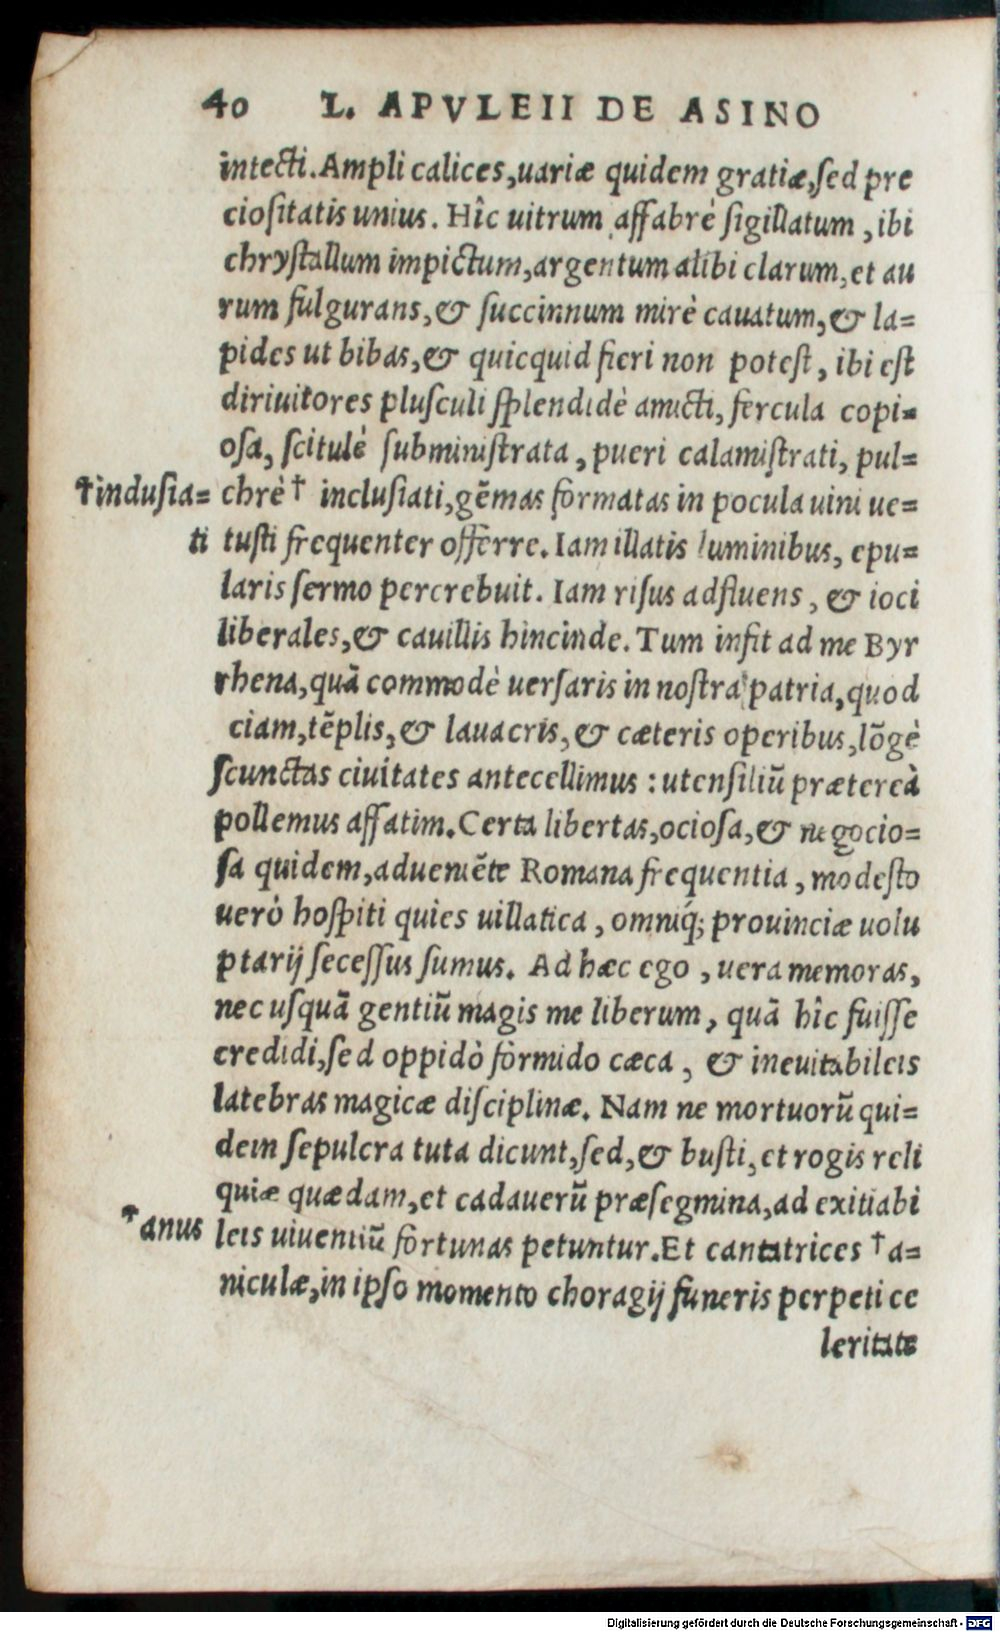 40 L. APVLEII DE ASINO
intecti. Ampli calices, uariæ quidem gratiæ, sed pre
ciositatis unius. Hîc uitrum affabrè sigillatum, ibi
chrystallum impictum, argentum alibi clarum, et au
rum fulgurans, & succinnum mirè cauatum, & la=
pides ut bibas, & quicquid fieri non potest, ibi est
diriuitores plusculi splendidè amicti, fercula copi=
osa, scitulè subministrata, pueri calamistrati, pul=
†indusia= chrè † inclusiati, gẽmas formatas in pocula uini ue=
ti tusti frequenter offerre. Iam illatis luminibus, epu=
laris sermo percrebuit. Iam risus adfluens, & ioci
liberales, & cauillis hincinde. Tum infit ad me Byr
rhena, quã commodè uersaris in nostra patria, quod
ciam, tẽplis, & lauacris, & cæteris operibus, lõgè
scunctas ciuitates antecellimus: utensiliũ prætereà
pollemus affatim. Certa libertas, ociosa, & negocio=
sa quidem, adueniẽte Romana frequentia, modesto
uerò hospiti quies uillatica, omniq́; prouinciæ uolu
ptarij secessus sumus. Ad hæc ego, uera memoras,
nec usquã gentiũ magis me liberum, quã hîc fuisse
credidi, sed oppidò formido cæca, & ineuitabileis
latebras magicæ disciplinæ. Nam ne mortuorũ qui=
dem sepulcra tuta dicunt, sed, & busti, et rogis reli
quiæ quædam, et cadauerũ præsegmina, ad exitiabi
†anus leis uiuentiũ fortunas petuntur. Et cantatrices † a=
niculæ, in ipso momento choragij funeris perpeti ce
leritate
Digitalisierung gefördert durch die Deutsche Forschungsgemeinschaft - DFG